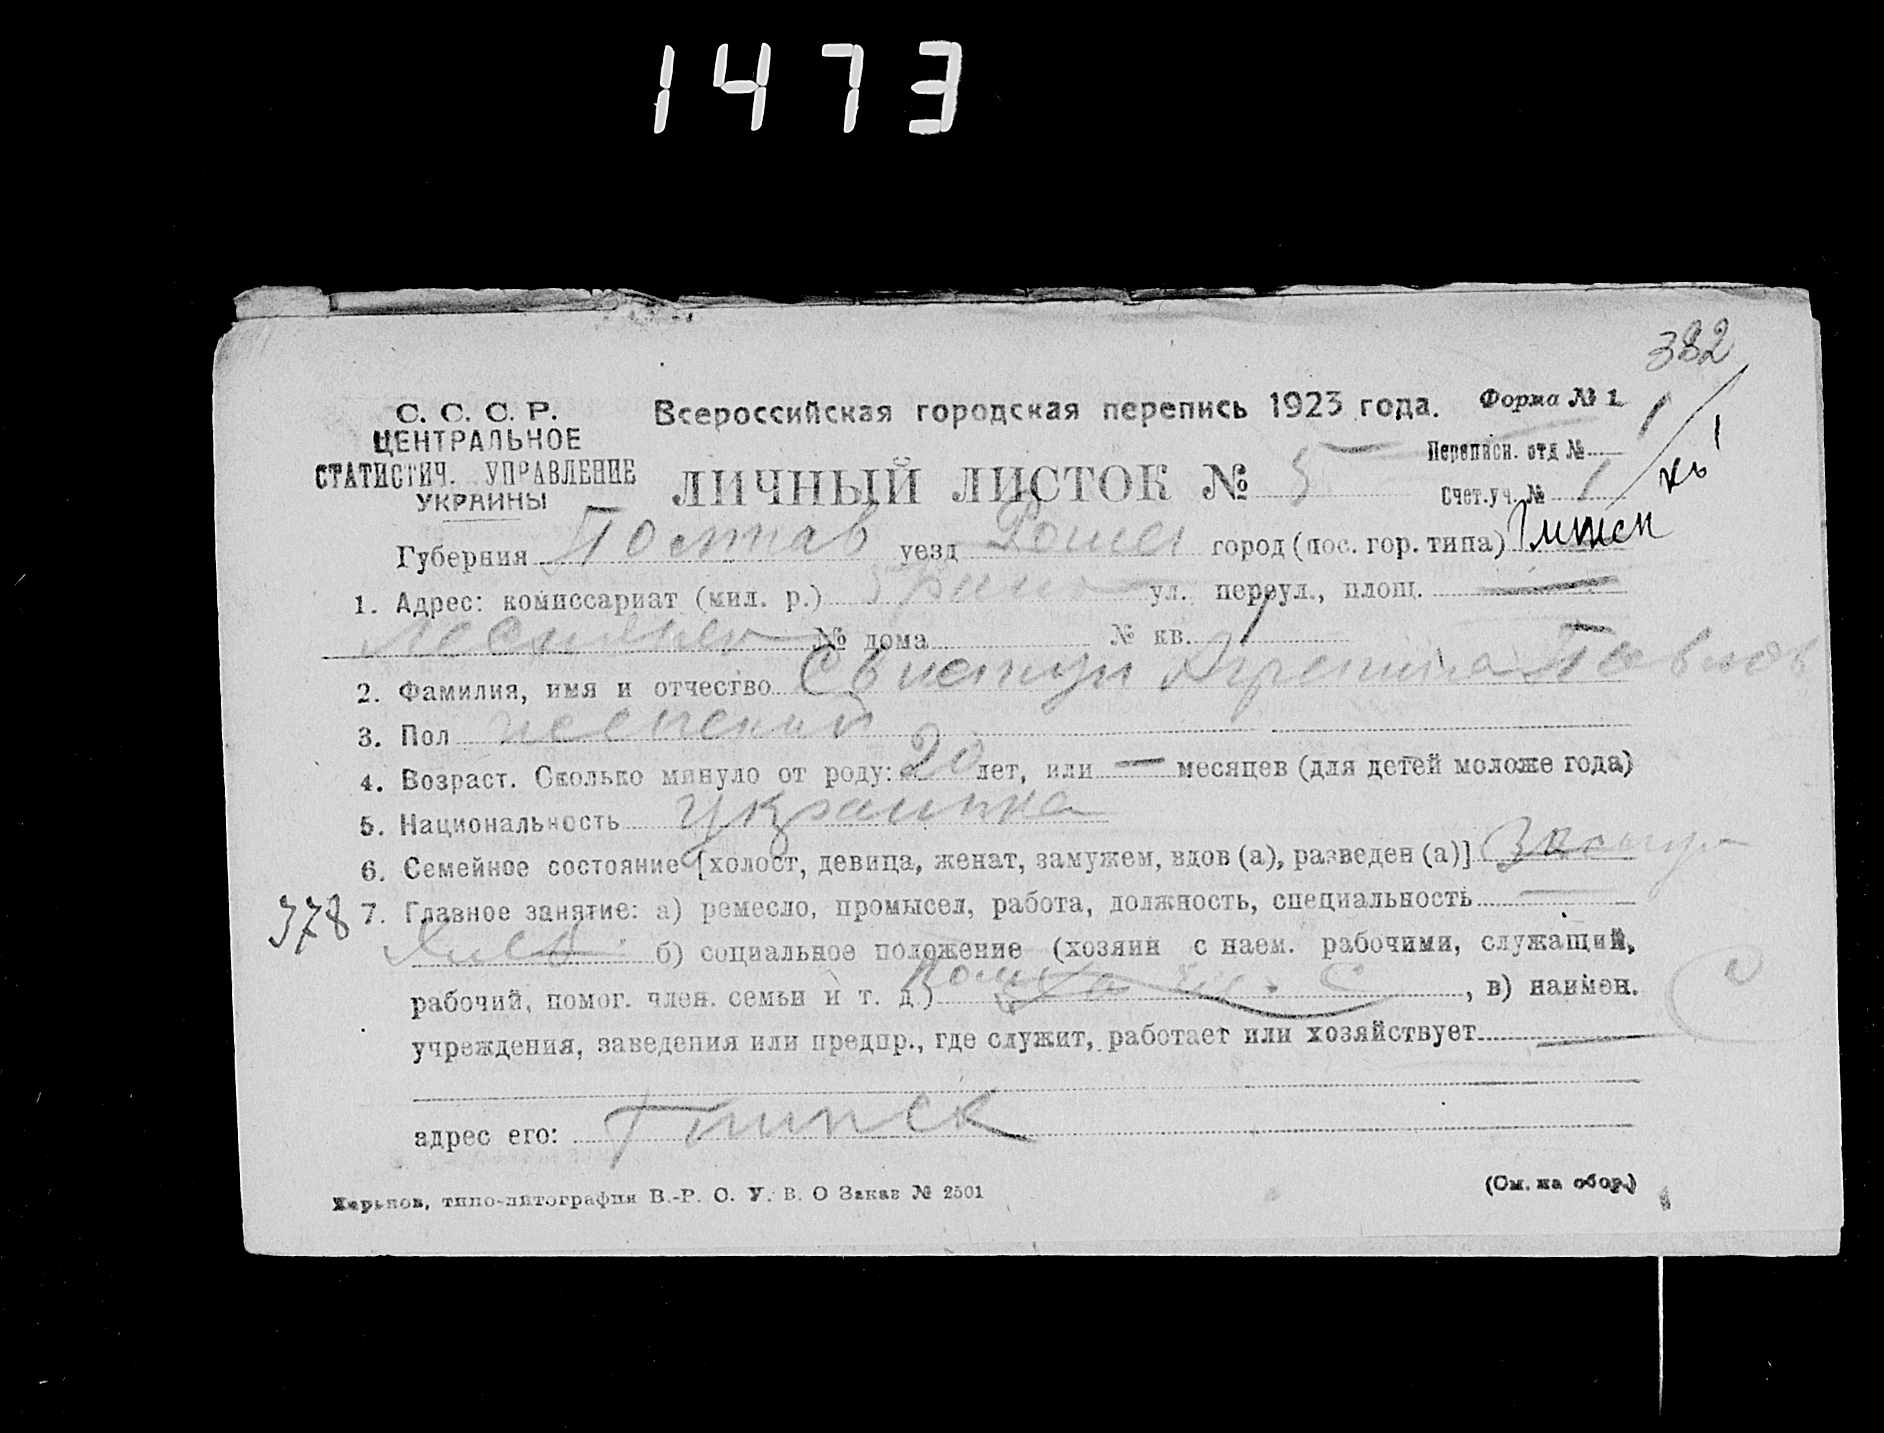 1473
382
С. С. С. Р.
ЦЕНТРАЛЬНОЕ
СТАТИСТИЧ. УПРАВЛЕНИЕ
УКРАИНЫ
Всероссийская городская перепись 1923 года.
Форма № 1
ЛИЧНЫЙ ЛИСТОК № 5
Переписн. отд № 1
Счет.уч. № 1
Губерния Полтав уезд Ромен город (пос. гор. типа)
1. Адрес: комиссариат (мил. р.) ул. переул., площ. —
№ дома № кв. 1
2. Фамилия, имя и отчество Свистун Павлов
3. Пол женский
4. Возраст. Сколько минуло от роду: 20 лет, или — месяцев (для детей моложе года)
5. Национальность украинка
6. Семейное состояние [холост, девица, женат, замужем, вдов (а), разведен (а)]
378
7. Главное занятие: а) ремесло, промысел, работа, должность, специальность —
б) социальное положение (хозяин с наем. рабочими, служащий,
рабочий, помог. член. семьи и т. д.) , в) наимен.
С
учреждения, заведения или предпр., где служит, работает или хозяйствует —
адрес его: Глинск
Харьков, типо-литография В.-Р. О. У. В. О Заказ № 2501
(См. на обор.)